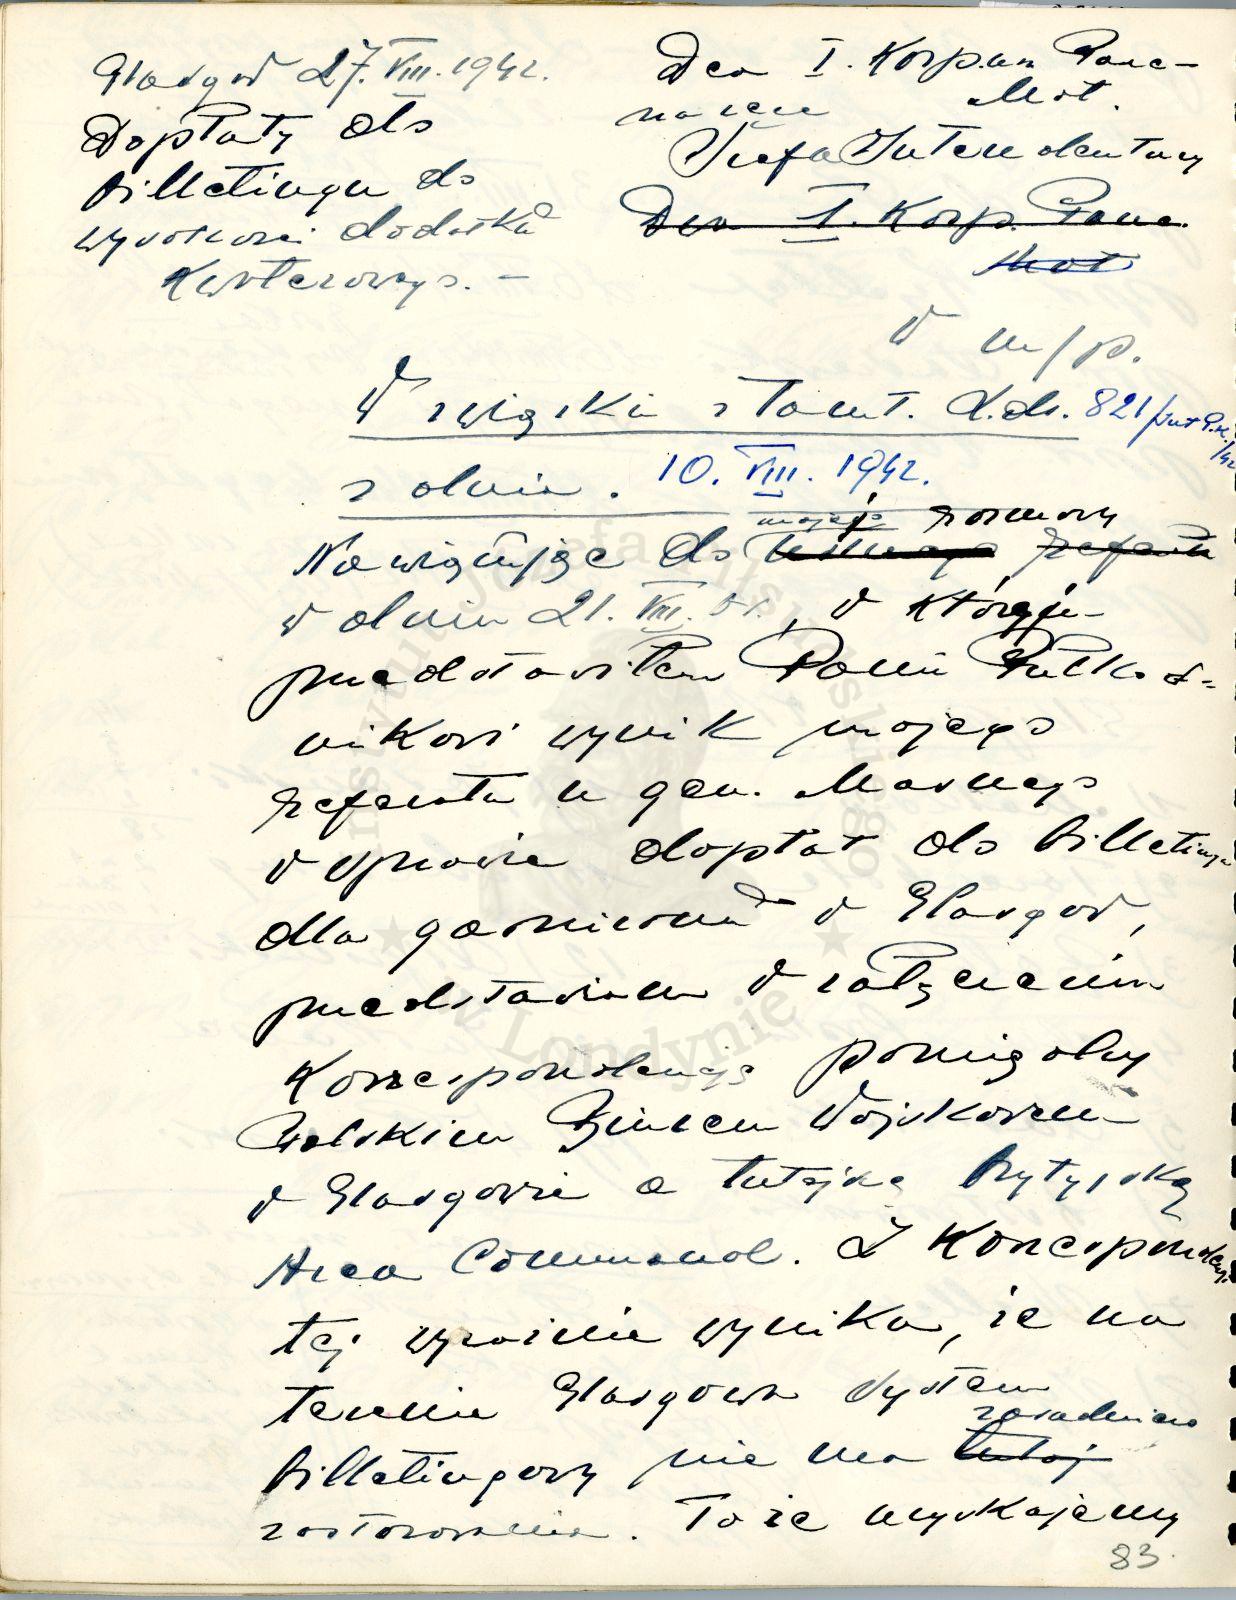 Glasgow 27.VIII.1942.
Dopłaty do
billetingu do
wysokości dodatku
kwaterowego. –
Dca I. Korpusu Panc-
Mot.
Szefa Intendentury
Dca I. Korp. Panc.
Mot
w m/p.
W związku z tamt. L.dz. 821/Int P.K./42
z dnia. 10. VIII. 1942.
mojej rozmowy
Nawiązując do
w dniu 21. VIII. br., w której
przedstawiłem Panu Pułko-
wnikowi wynik mojego
referatu u gen. Masnego
w sprawie dopłat do billetingu
dla garnizonu w Glasgow,
przedstawiam w załączeniu
korespondencję pomiędzy
Polskim Biurem Wojskowem
w Glasgowie a tutejszą brytyjską
Area Command. Z korespondencji
tej wyraźnie wynika, że na
terenie Glasgowa system
zasadniczo
billetingowy nie ma tutaj
zastosowania. To że uzyskujemy
83.
Instytut Józefa Piłsudskiego
w Londynie